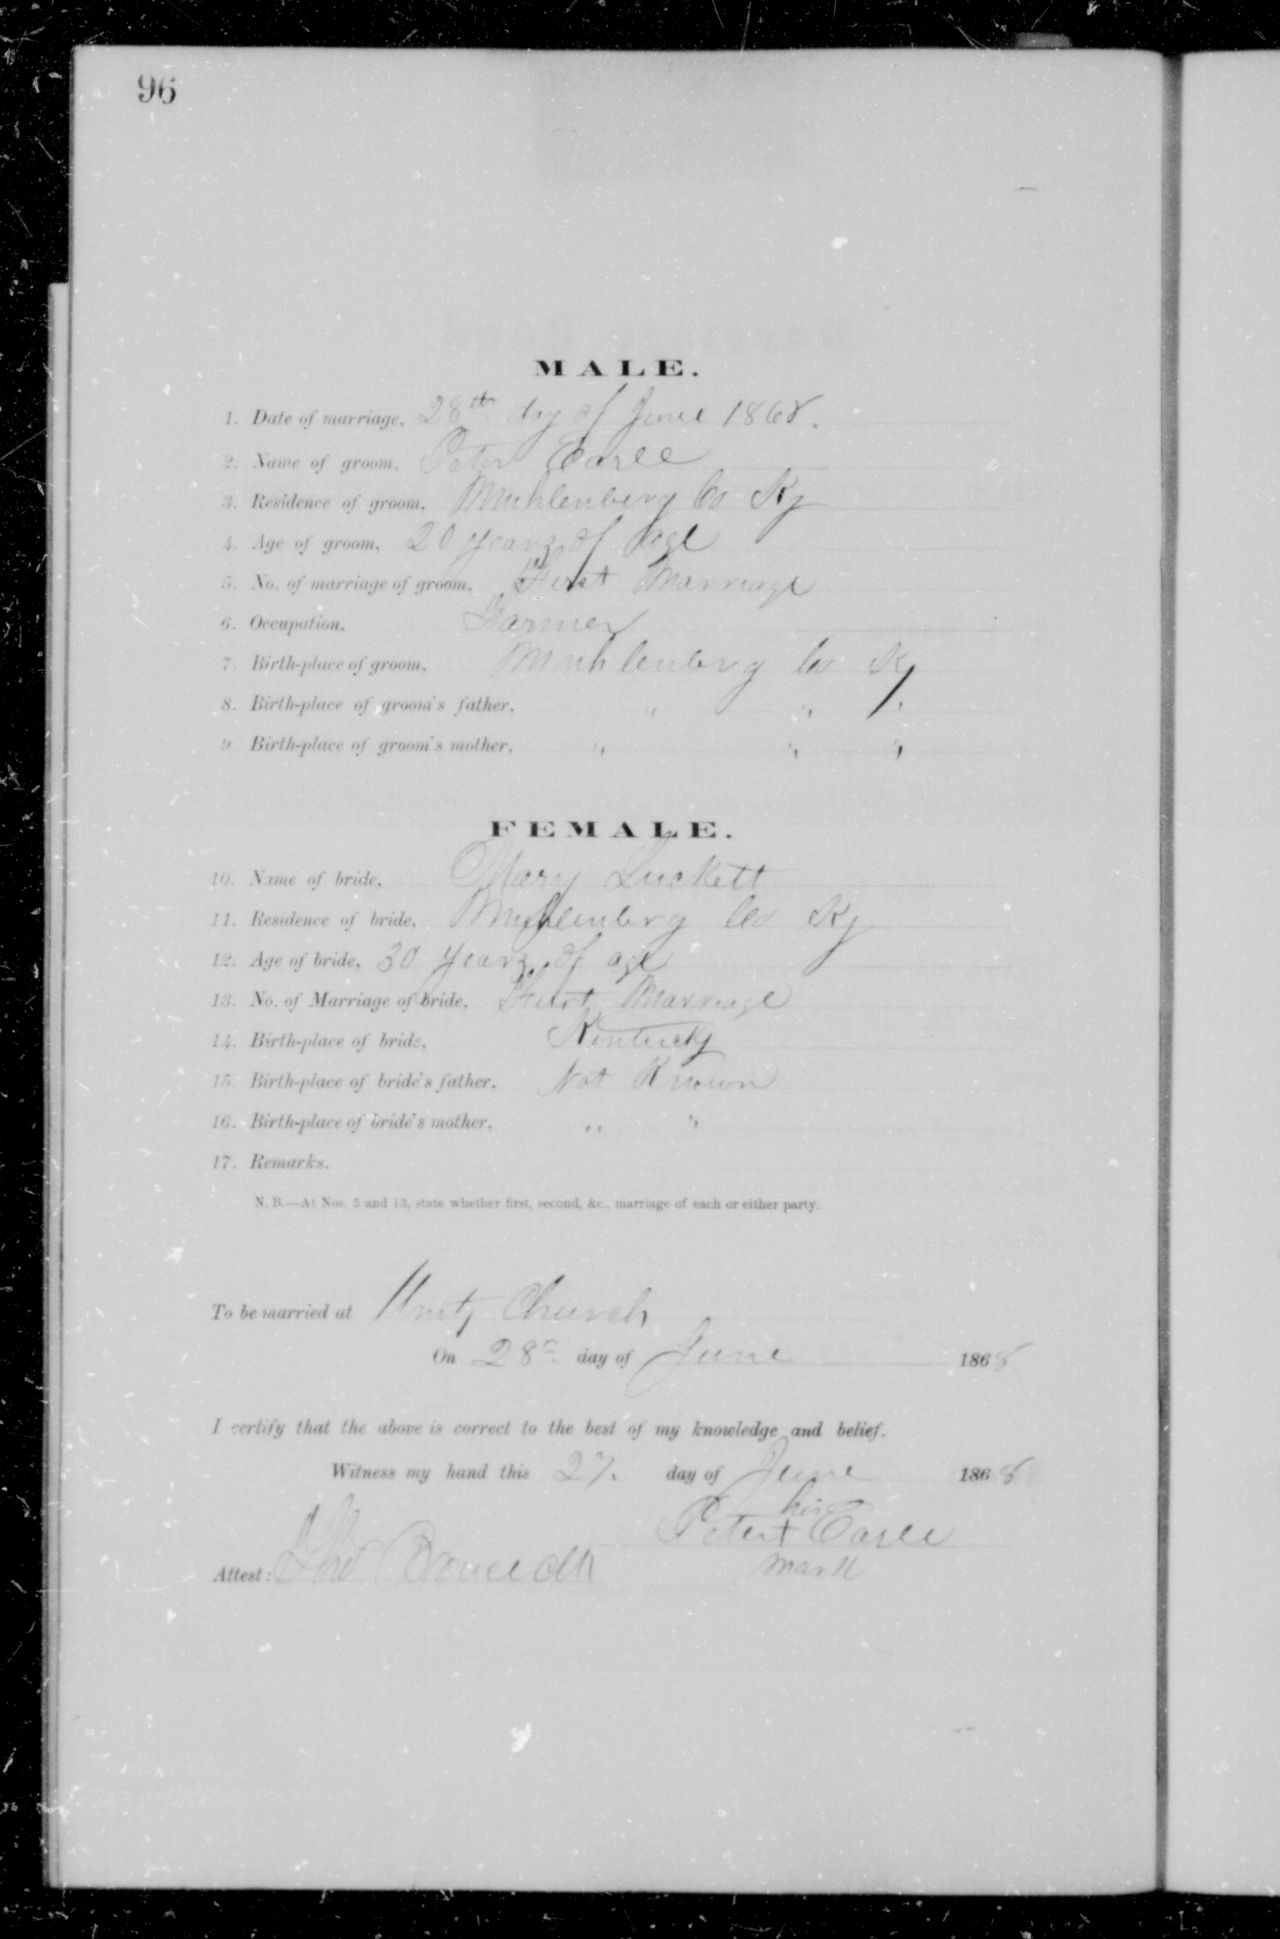 96
MALE.
1. Date of marriage, 28th day of June 1868.
2. Name of groom, Peter Earle
3. Residence of groom, Muhlenberg Co Ky
4. Age of groom, 20 years of age
5. No. of marriage of groom, First Marriage
6. Occupation, Farmer
7. Birth-place of groom, Muhlenberg Co Ky
8. Birth-place of groom's father, " " "
9. Birth-place of groom's mother, " " "
FEMALE.
10. Name of bride, Mary Luckett
11. Residence of bride, Muhlenberg Co Ky
12. Age of bride, 30 years of age
13. No. of Marriage of bride, First Marriage
14. Birth-place of bride, Kentucky
15. Birth-place of bride's father, Not Known
16. Birth-place of bride's mother, " "
17. Remarks.
N. B.—At Nos. 5 and 13, state whether first, second, &c., marriage of each or either party.
To be married at Unity Church
On 28th day of June 1868
I certify that the above is correct to the best of my knowledge and belief.
Witness my hand this 27. day of June 1868
his
Peter + Earle
mark
Attest: